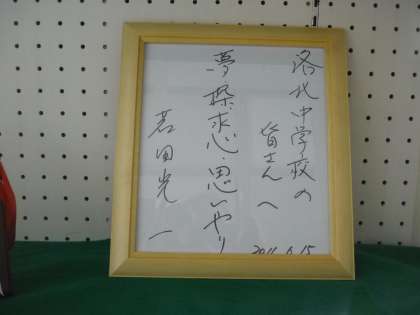 洛北中学校の
皆さんへ
夢・探求心・思いやり
若田光一